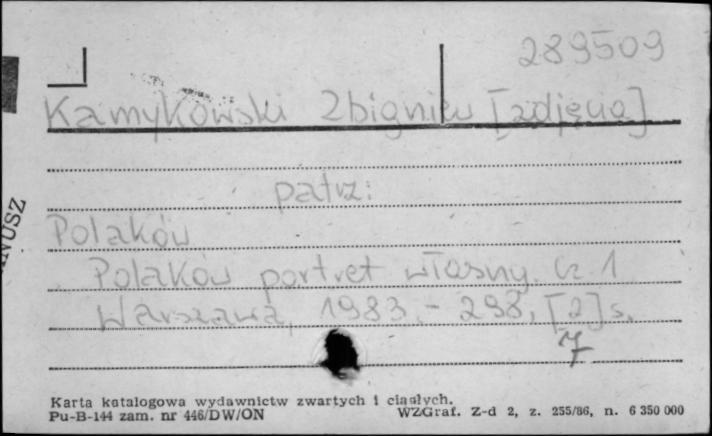 289509
Kamykowski Zbigniew [zdjęcia]
patrz:
Polaków
Polaków portret własny. Cz. 1
Warszawa, 1983. - 298, [2] s.
7
Karta katalogowa wydawnictw zwartych i ciągłych.
Pu-B-144 zam. nr 446/DW/ON WZGraf. Z-d 2, z. 255/86, n. 6 350 000